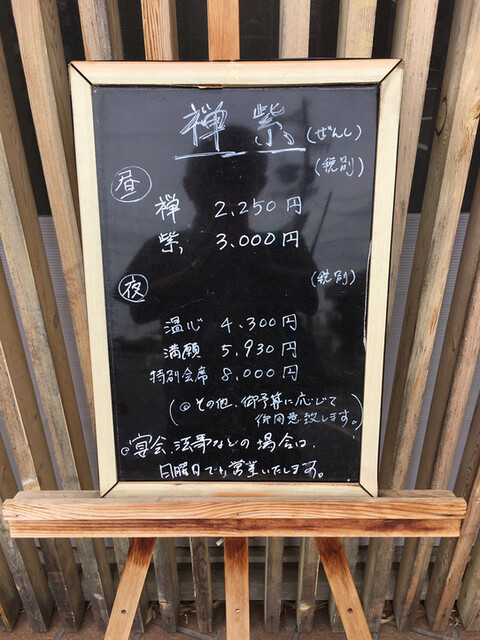 禅紫(ぜんし)
(税別)
昼
禅 2,250円
紫 3,000円
(税別)
夜
温心 4,300円
満願 5,930円
特別会席 8,000円
(◎その他、御予算に応じて
御用意致します。)
◎宴会、法要などの場合は、
日曜日でも営業いたします。